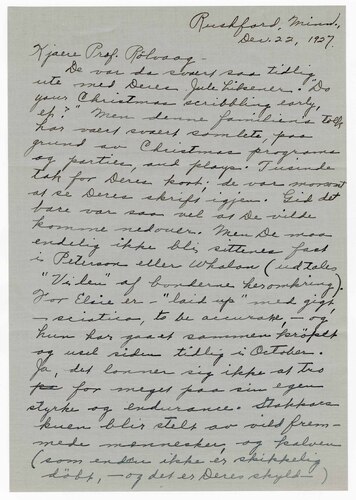 Rushford, Minn.,
Dec. 22, 1927.
Kjære Prof. Rölvaag—
De var da svært saa tidlig
ute med Deres Jule hilsener. "Do
your Christmas scribbling early,
eh?" Men denne familiens
har vært svært somlete, paa
grund av Christmas programs
og parties, and plays. Tusinde
tak for Deres kort; de var morsomt
at se Deres skrift igjen. Gid det
bare var saa vel at De vilde
komme nedover. Men De maa
endelig ikke bli sittenes fast
i Peterson eller Whalan (udtales
"Vilen" af bønderne heromkring).
For Elsie er "laid up" med gigt
— sciatica, to be accurate, — og
hun har gaaet sammen krøpet
og ussel siden tidlig i October.
Ja, det lønner sig ikke at tro
for meget paa sin egen
styrke og endurance. Stakkars
kuen blir stelt av vild frem-
mede mennesker, og kalven
(som endnu ikke er skikkelig
döbt, — og det er Deres skyld —)